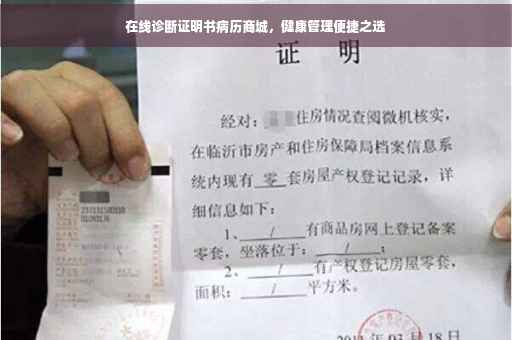 在线诊断证明书病历商城，健康管理便捷之选
证 明
经对：住房情况查阅微机核实，
在临沂市房产和住房保障局档案信息系
统内现有 零 套房屋产权登记记录，详
细信息如下：
1、 / 有商品房网上登记备案
零套，坐落位于： / ；
2、 / 有产权登记房屋零套，
面积： / 平方米。
03月18日